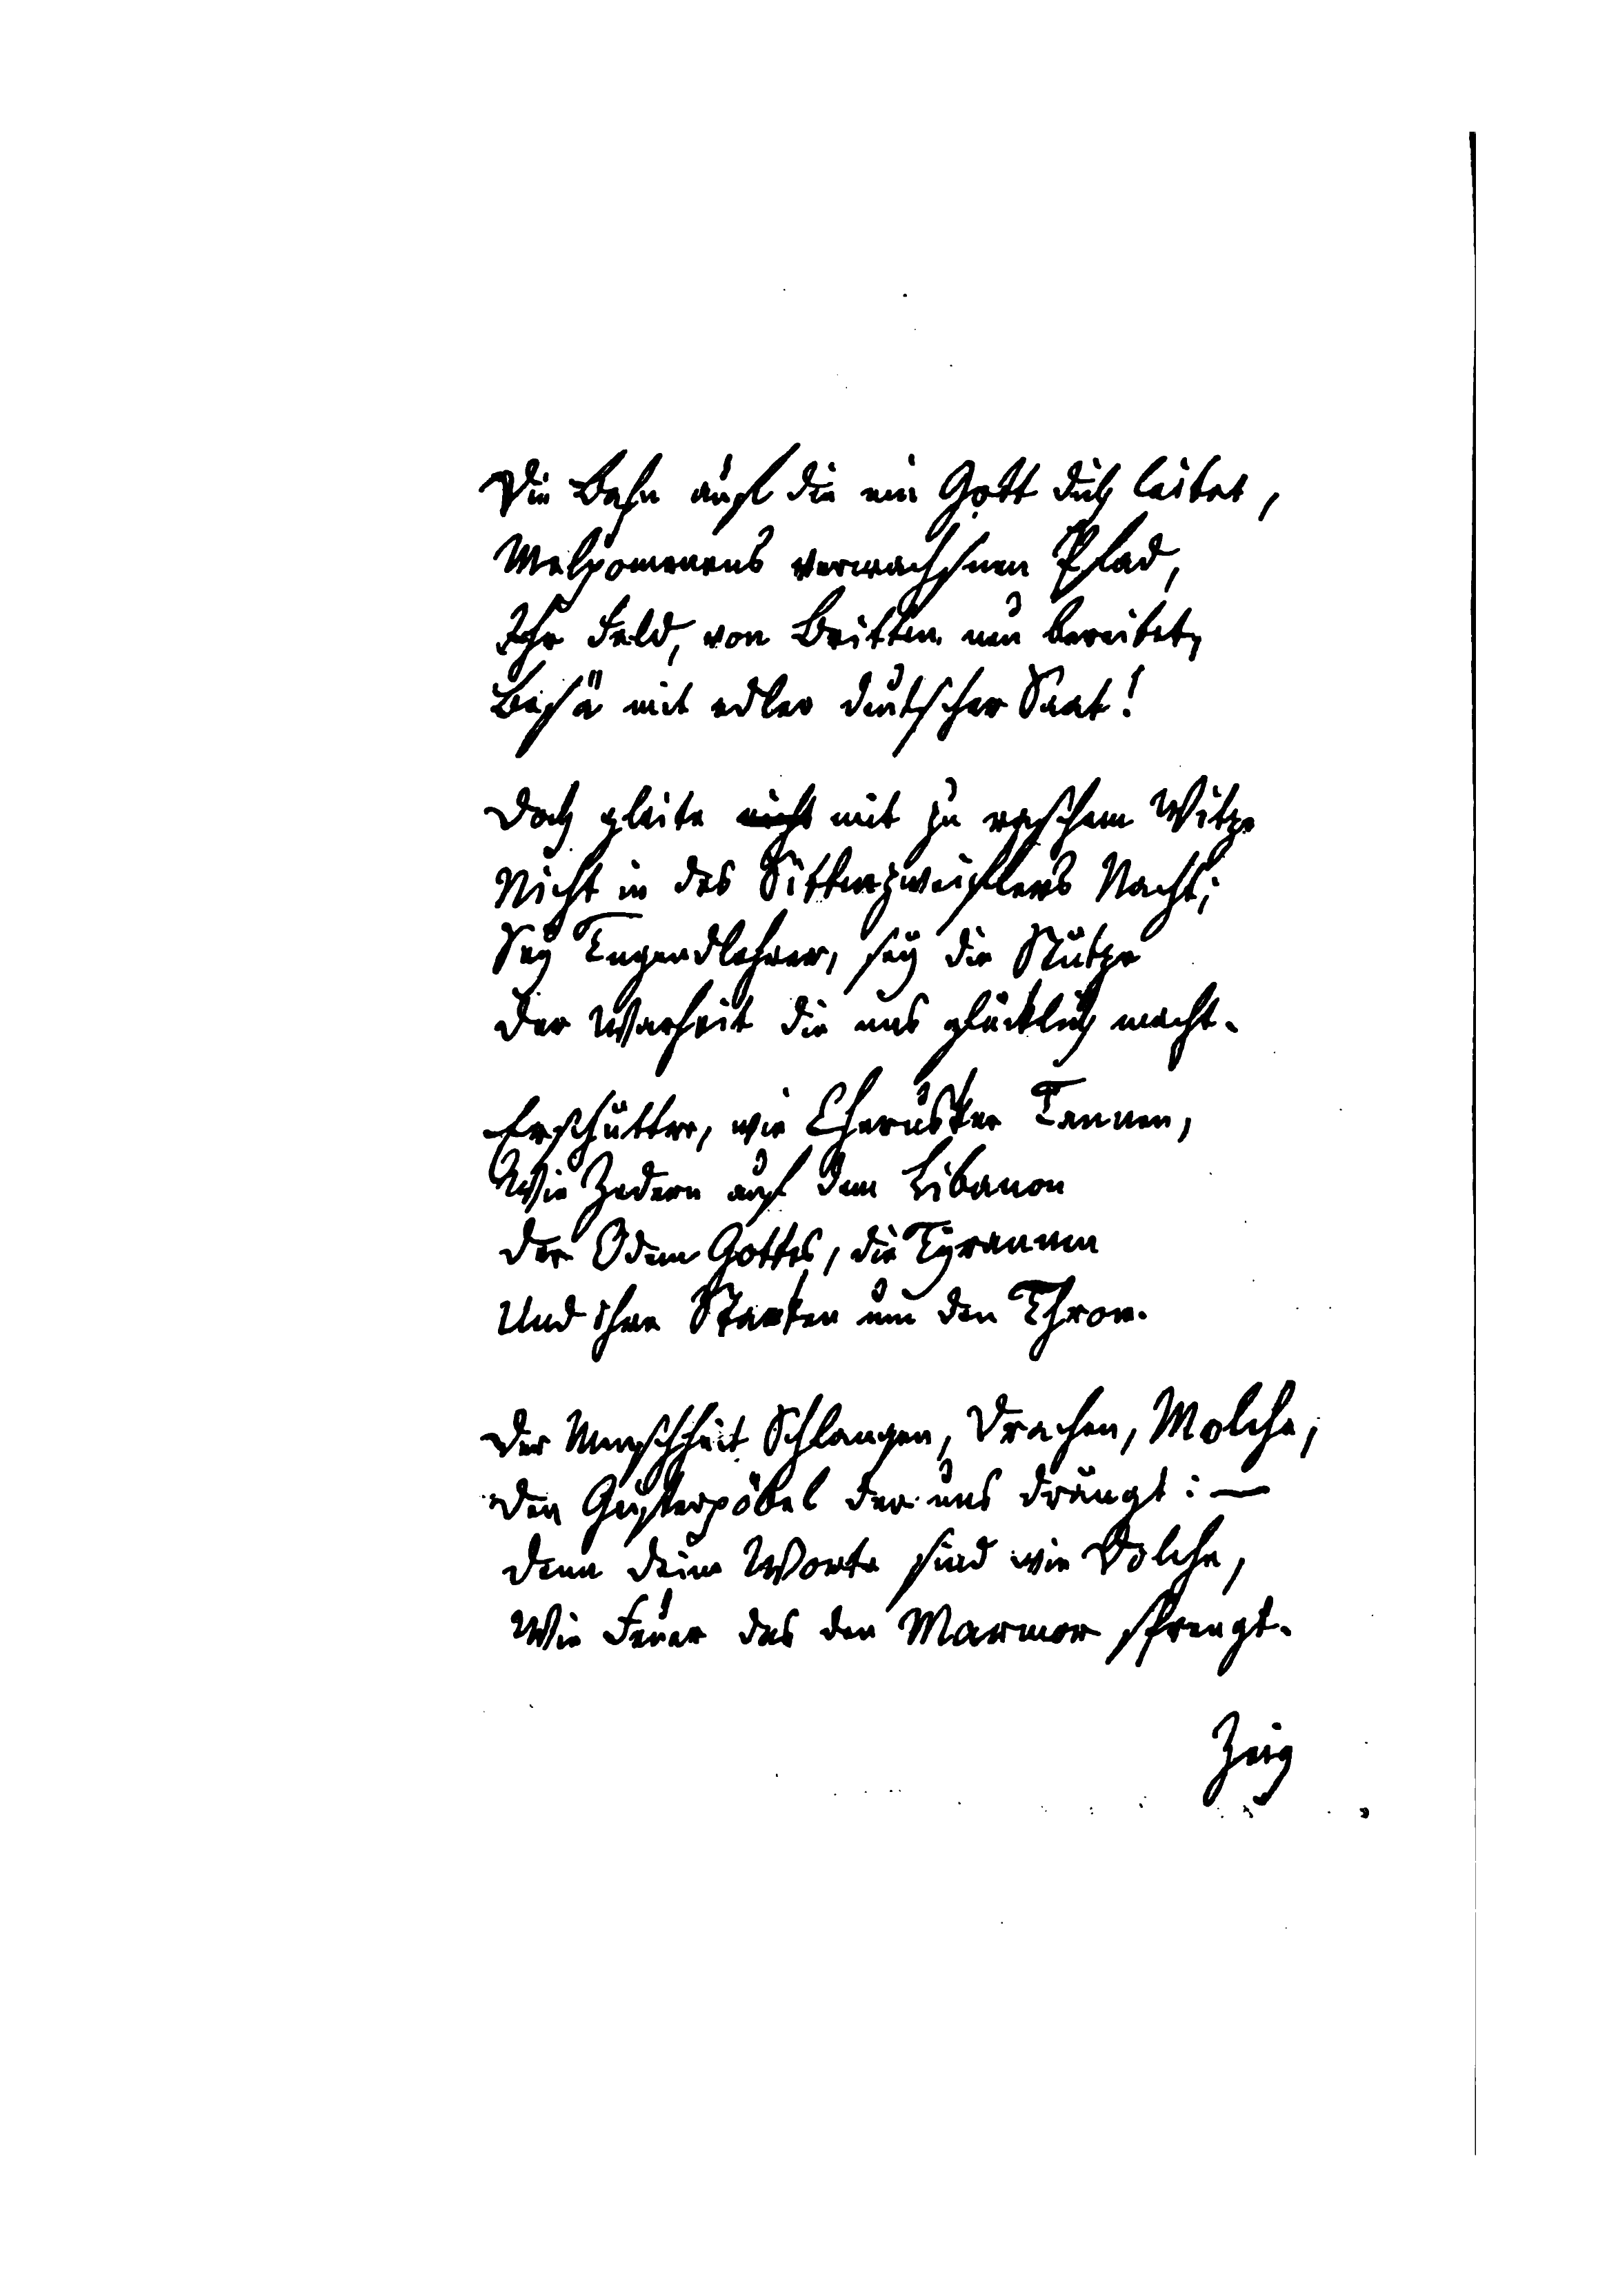 Die Bahn auf die ein Gott dich leitet,
Melpomenens verwachsnen Pfad,
Ihr Feld, von Britten neu bereitet,
Besä mit edler deutscher Saat!
Doch gleite nicht mit zu raschem Witze
Nicht in des Sittenzweiflers Nacht;
Sey Tugendlehrer, sey die Stütze
Der Warheit die uns glücklich macht.
Erschüttre, wie Cherusker Tannen,
Wie Zedern auf dem Libanon
Der Odem Gottes, die Tyrannen
Und ihre Starken um den Thron.
Der Menschheit Schlangen, Drachen, Molche,
Den Geisterpöbel der uns drängt: —
Denn deine Worte sind wie Dolche,
Wie Feuer das den Marmor sprengt.
Zeig